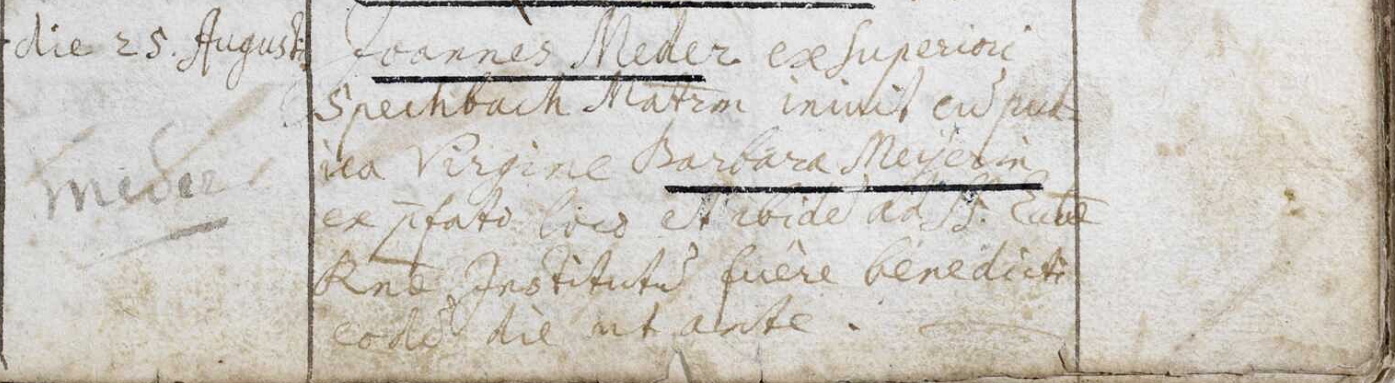 die 25. Augusti
Joannes Meder ex superiori
Spechbach Matrm iniuit cũ pud-
ica Virgine Barbara Meÿerin
ex p̄fato loco et ibidē ad SS.
Rnē Institutũ fuêre benedicti
eodē die ut ante.
Meder